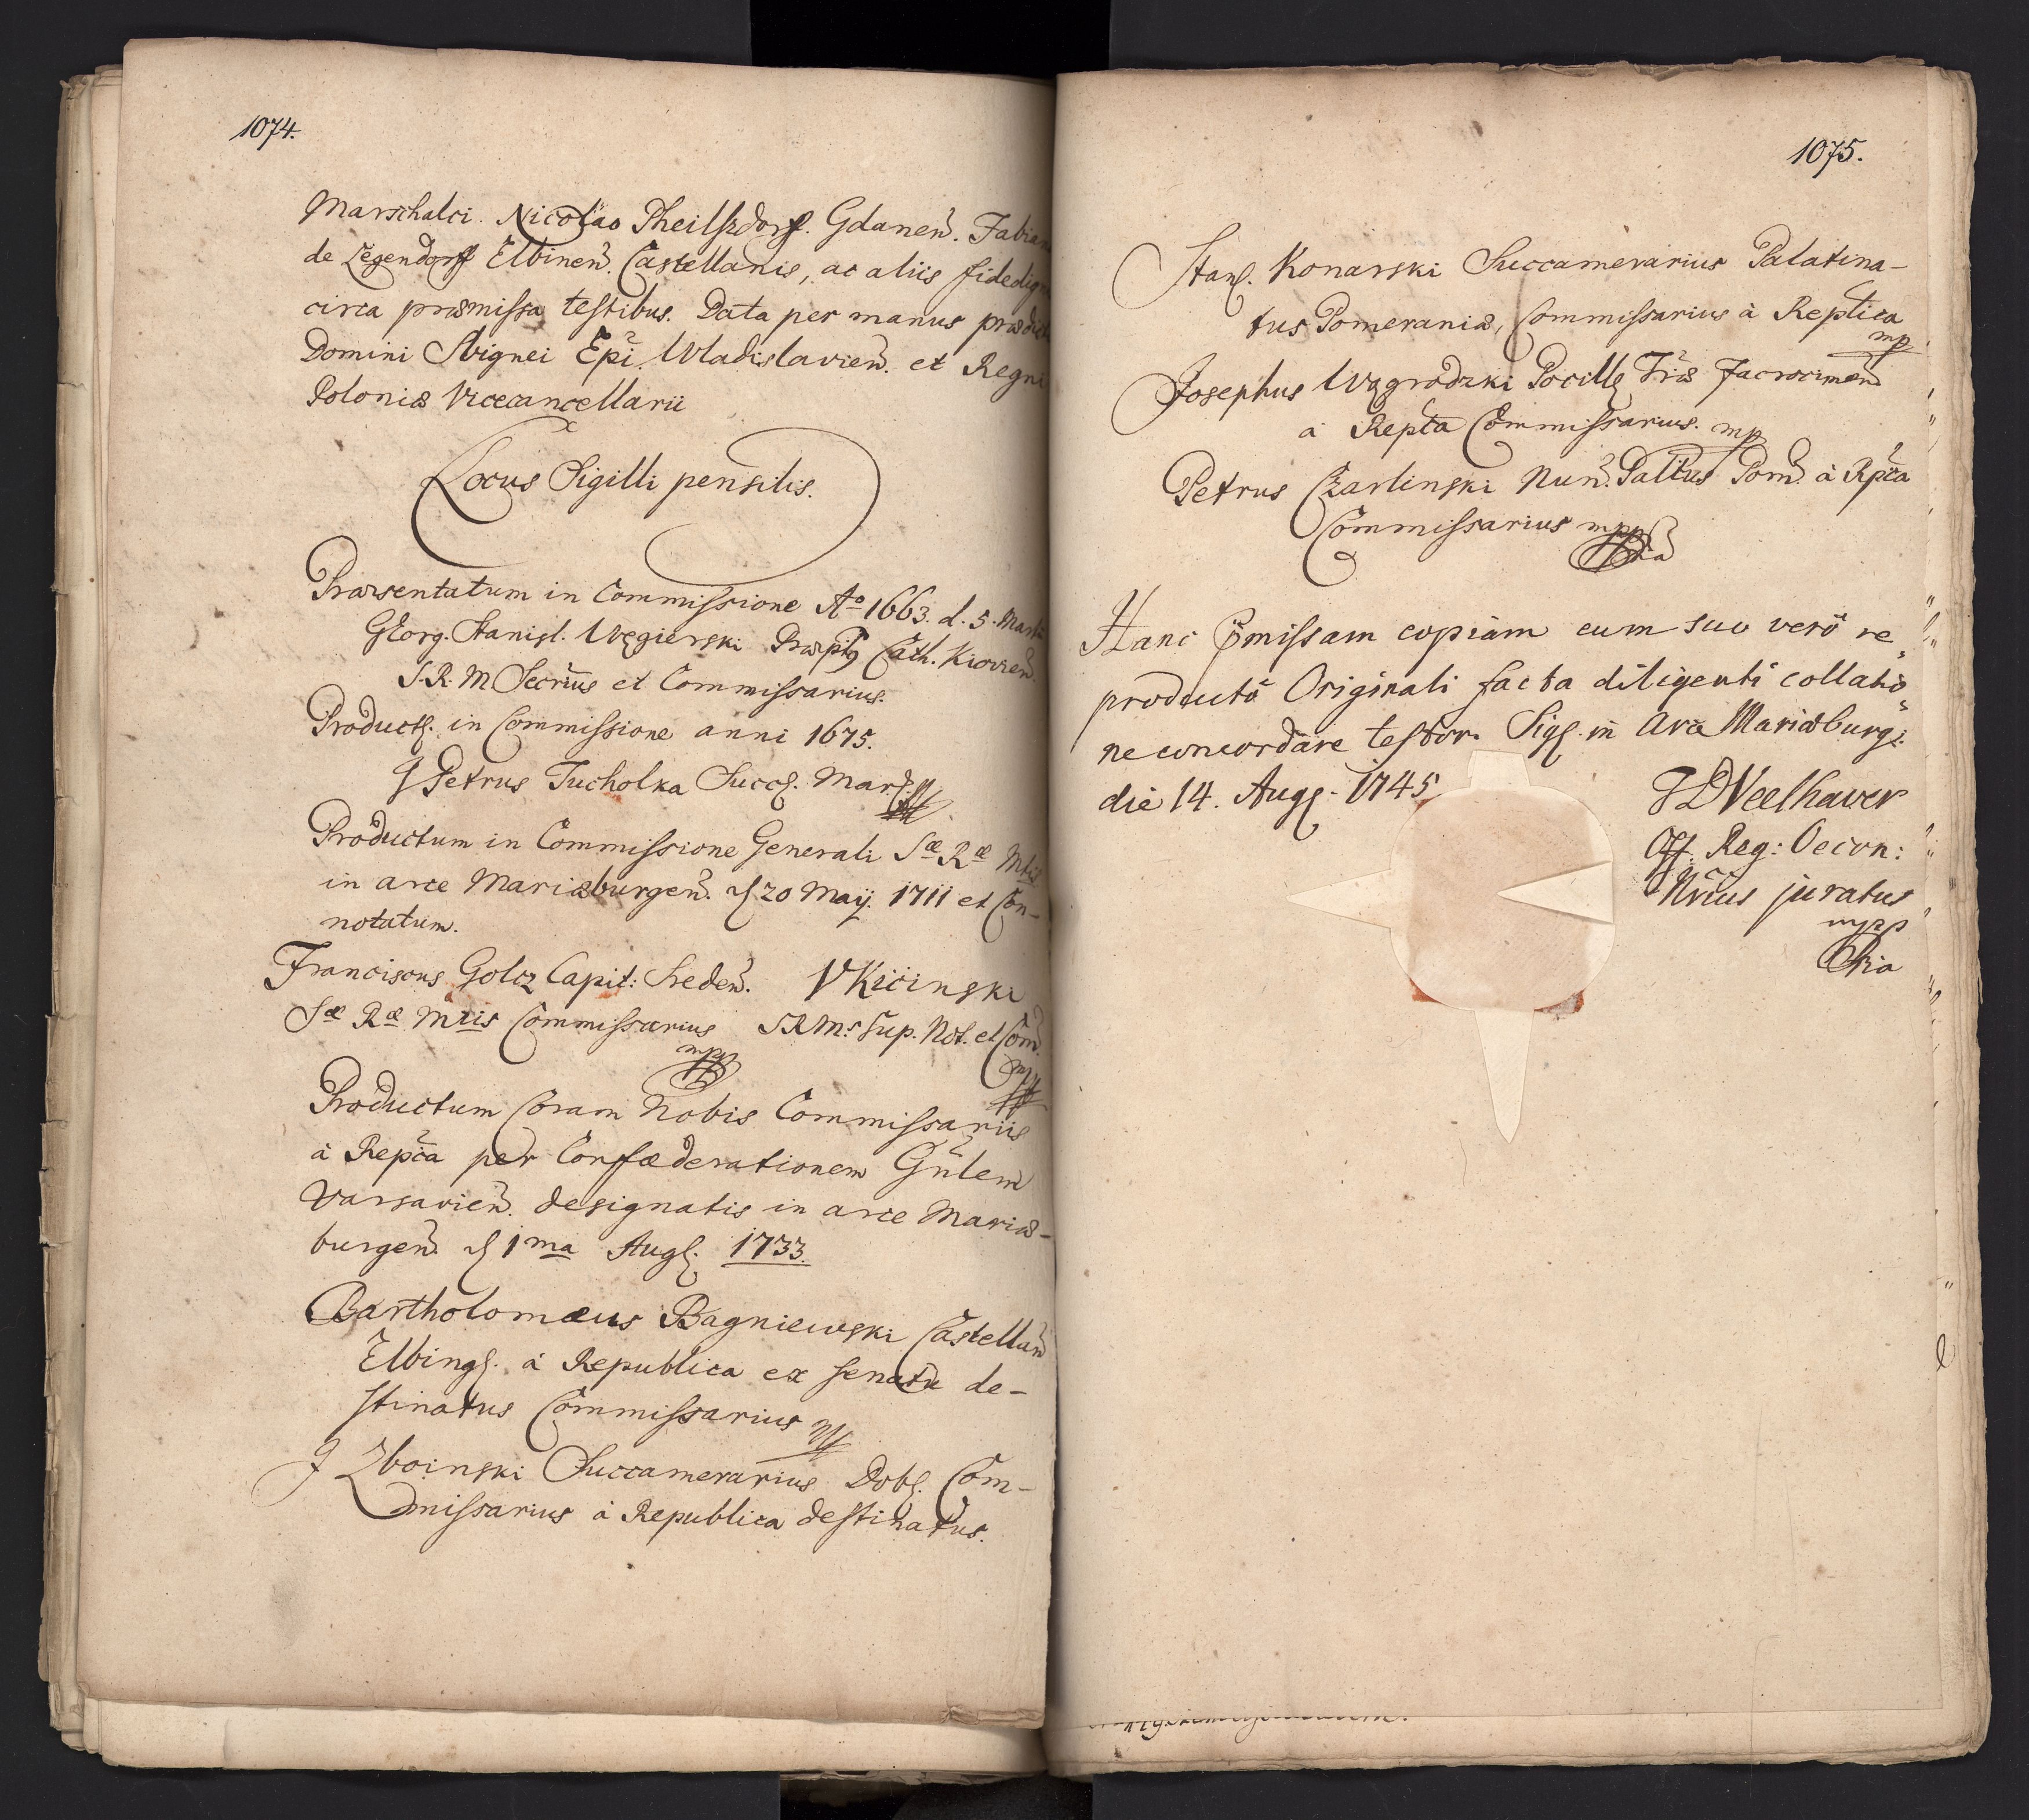 1074.
Marschalci. Nicolao Theilszdorff. Gdanen. Fabian
de Legendorff Elbinen. Castellanis, ac aliis fidedig
circa præmissa testibus. Data per manus prædict
Domini Sbignei Epi. Wladislavien. et Regni
Poloniæ Vicecancellarii
Locus Sigilli pensilis.
Præsentatum in Commissione Aº 1663. d. 5. Marti
Georg. Stanisl. Węgierski Præpitq Cath. Kiovien.
S. R. M Secrius et Commissarius.
Product. in Commissione anni 1675.
J Petrus Tucholka Succ. Mar.
Productum in Commissione Generali Sæ Ræ Mtis
in arce Mariæburgen. d 20 Maij. 1711 et Con-
notatum.
Franciscus Golcz Capit: Sreden. V Kicinski
Sæ Ræ Mtis Commissarius SRMs Sup. Not. et Com.
mpp
Productum Coram Nobis Commissariis
à Repca per Confæderationem Gnlem
Varsavien. designatis in arce Mariæ-
burgen. d 1ma Aug. 1733.
Bartholomæus Bagniewski Castellan
Elbing. à Republica ex Senatu de-
stinatus Commissarius
J Zboinski Succamerarius Dob. Com-
missarius à Republica destinatus.
1075.
Stan. Konarski Succamerarius Palatina-
tus Pomeraniæ, Commissarius à Replica
mp
Josephus Wągrodzki Pocill Træ
à Repca Commissarius. mp
Petrus Czarlinski Nun. Palttus Pom. à Rpca
Commissarius mpp
Hanc pmissam copiam cum suo verò re„
productò Originali facta diligenti collatio„
ne concordare testor. Sig. in Arce Mariæburg:
die 14. Aug. 1745
Off. Reg: Oecon:
Nrius juratus
mpp
ria